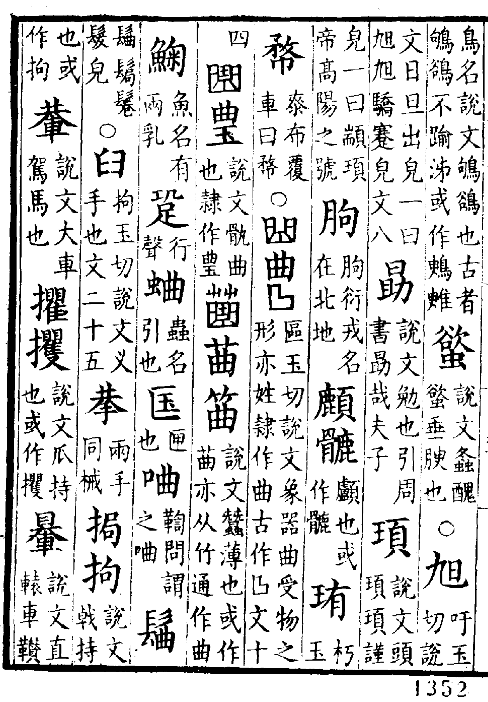 鳥名說文鴝鵒也古者鴝鵒不踰泲或作 螸說文螽醜螸垂腴也○旭吁玉切說
文日旦出皃一曰旭旭驕蹇皃文八 勗說文勉也引周書勗哉夫子 頊說文頭頊頊謹
皃一曰顓頊帝高陽之號 朐朐衍戎名在北地 也或作 珛朽玉
布覆車曰○曲凵區玉切說文象器曲受物之形亦姓隸作曲古作凵文十
四 豊說文骫曲也隸作豊 苗筁說文蠶薄也或作苗亦从竹通作曲
鮈魚名有兩乳 行聲 蛐蟲名引也 匣也 鞫問謂之 髷
鬈髮皃○臼拘玉切說文叉手也文二十五 拲兩手同械 挶拘說文戟持
也或作拘 輂說文大車駕馬也 攫說文爪持也或作攫 說文直轅車
1352